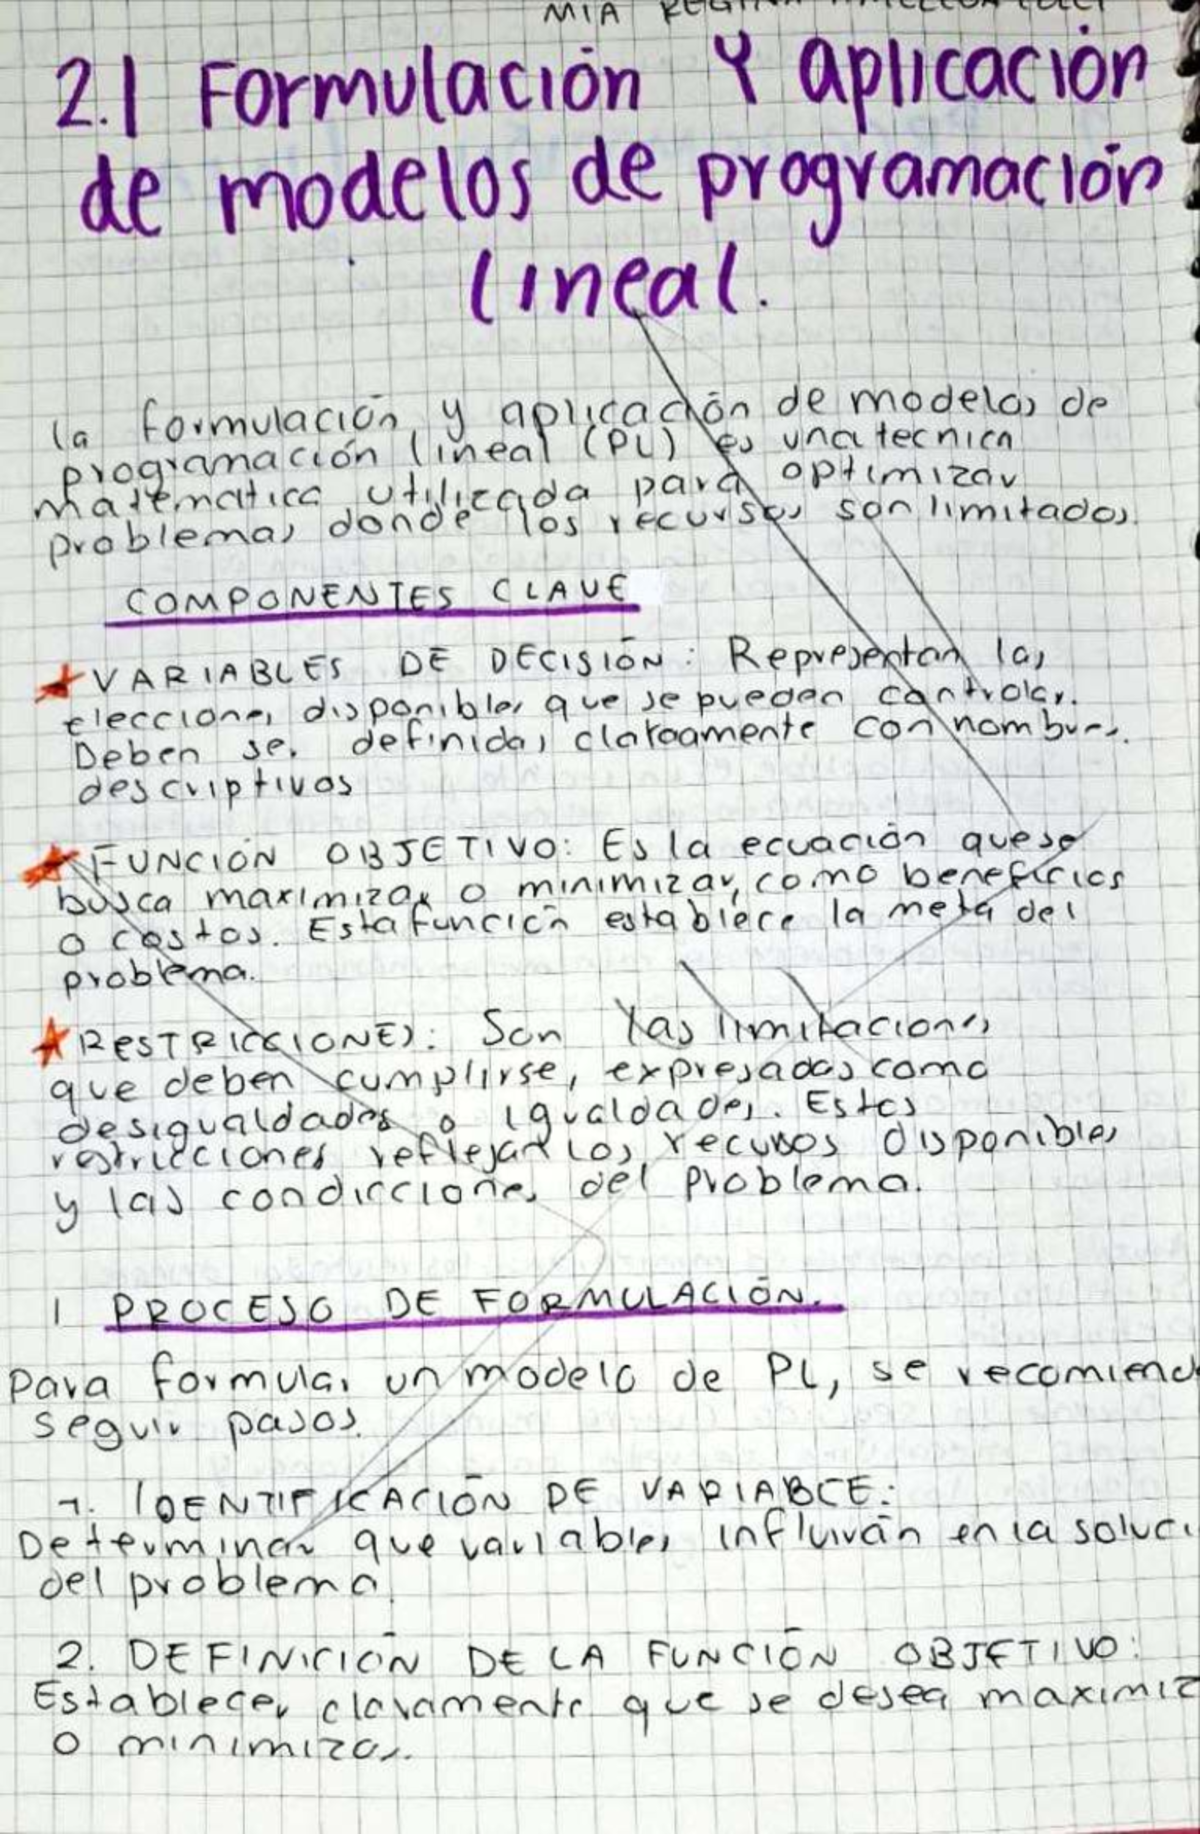 MIA REGINA
2.1 Formulación Y aplicación
de modelos de programación
lineal.
la formulación y aplicación de modelos de
programación lineal (PL) es una tecnica
matemática utilizada para optimizar
problemas donde los recursos son limitados.
COMPONENTES CLAVE
VARIABLES DE DECISIÓN: Representan las
elecciones disponibles que se pueden controlar.
Deben ser definidas claraamente con nombres
descriptivos
FUNCIÓN OBJETIVO: Es la ecuación que se
busca maximizar o minimizar, como beneficios
o costos. Esta función establece la meta del
problema.
RESTRICCIONES: Son las limitaciones
que deben cumplirse, expresadas como
desigualdades o igualdades. Estas
restricciones reflejan los recursos disponibles
y las condicciones del problema.
1 PROCESO DE FORMULACIÓN.
Para formular un modelo de PL, se recomiend
seguir pasos.
1. IDENTIFICACIÓN DE VARIABLE:
Determinar que variables influirán en la soluci
del problema.
2. DEFINICIÓN DE LA FUNCIÓN OBJETIVO:
Establecer claramente que se desea maximiz
o minimizar.